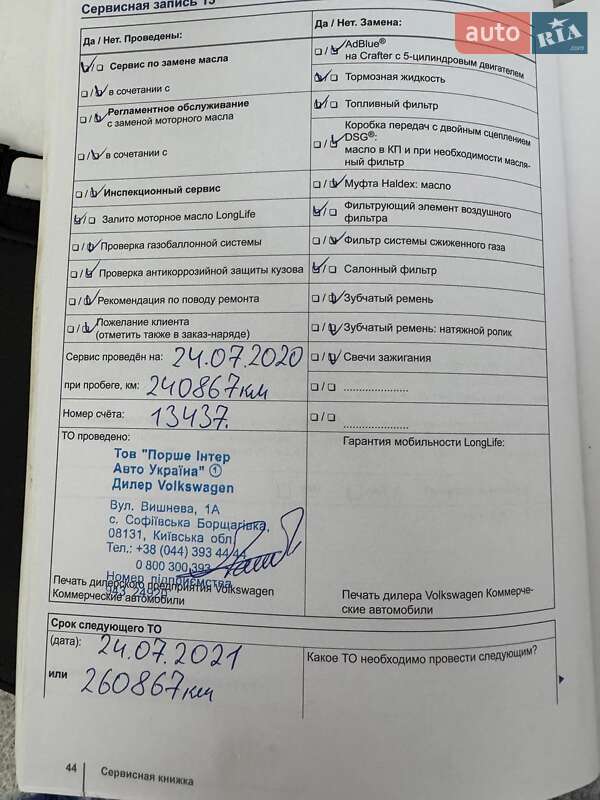 Сервисная запись 15
auto RIA .com
Да / Нет. Проведены:
Сервис по замене масла
в сочетании с
Регламентное обслуживание
с заменой моторного масла
в сочетании с
Инспекционный сервис
Залито моторное масло LongLife
Проверка газобаллонной системы
Проверка антикоррозийной защиты кузова
Рекомендация по поводу ремонта
Пожелание клиента
(отметить также в заказ-наряде)
Сервис проведён на: 24.07.2020
при пробеге, км: 240867км
Номер счёта: 13437.
ТО проведено:
Тов "Порше Інтер
Авто Україна" 1
Дилер Volkswagen
Вул. Вишнева, 1А
с. Софіївська Борщагівка,
08131, Київська обл.
Тел.: +38 (044) 393 44 44
0 800 300 393
Номер підприємства
943 24920
Печать дилерского предприятия Volkswagen
Коммерческие автомобили
Да / Нет. Замена:
AdBlue®
на Crafter с 5-цилиндровым двигателем
Тормозная жидкость
Топливный фильтр
Коробка передач с двойным сцеплением
DSG®:
масло в КП и при необходимости масля-
ный фильтр
Муфта Haldex: масло
Фильтрующий элемент воздушного
фильтра
Фильтр системы сжиженного газа
Салонный фильтр
Зубчатый ремень
Зубчатый ремень: натяжной ролик
Свечи зажигания
.....................
.....................
Гарантия мобильности LongLife:
Печать дилера Volkswagen Коммерче-
ские автомобили
Срок следующего ТО
(дата): 24.07.2021
или 260867км
Какое ТО необходимо провести следующим?
44 Сервисная книжка